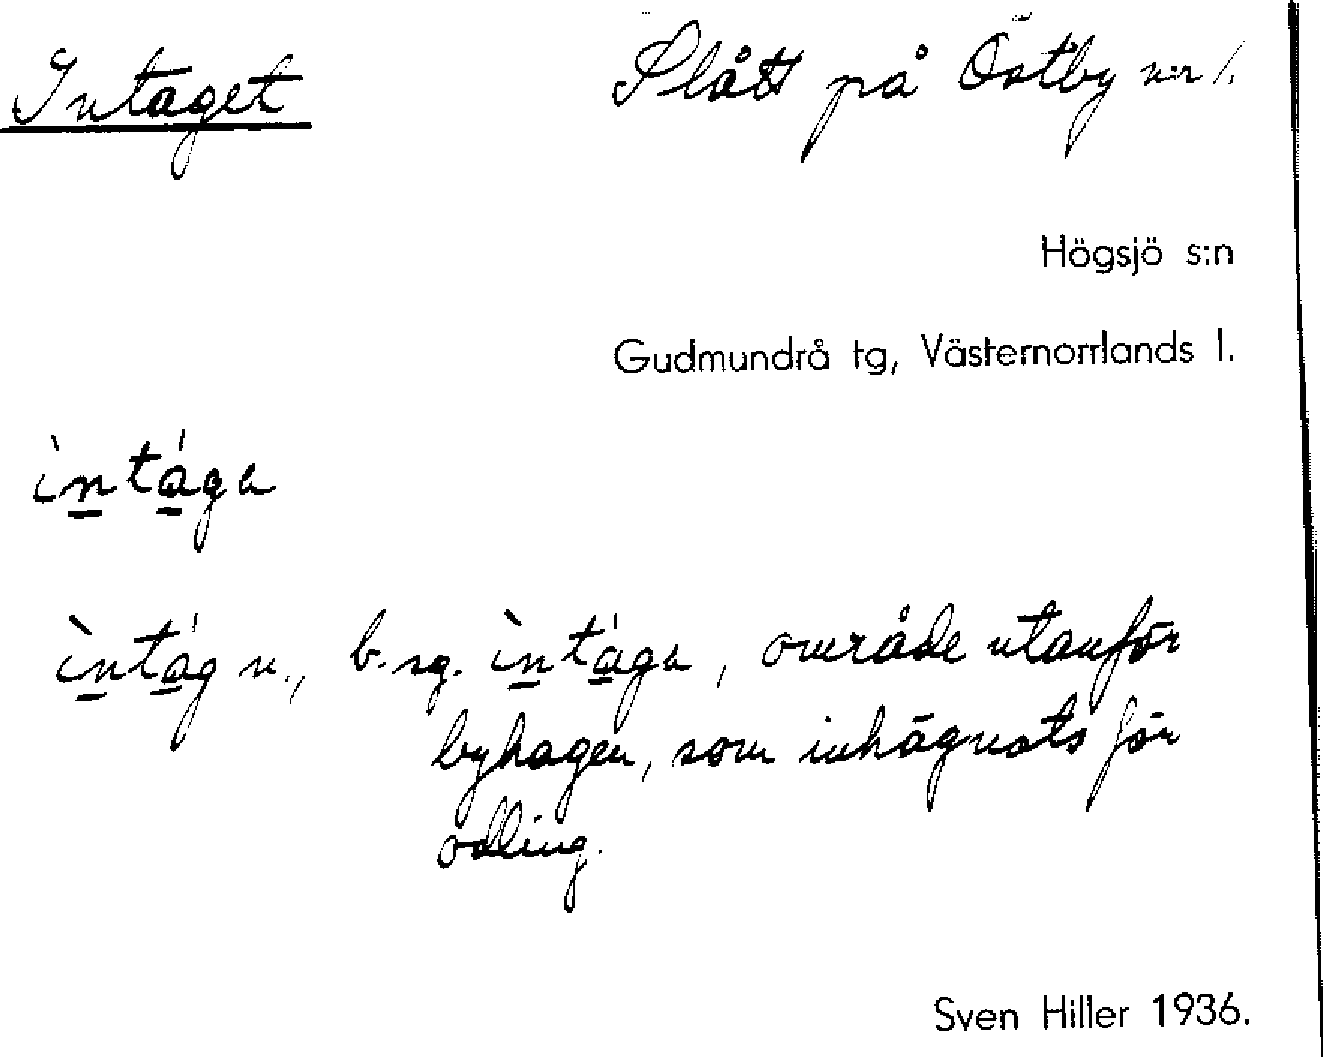 Intaget
Slått på Östby n:r 1.
Högsjö s:n
Gudmundrå tg, Västernorrlands l.
ìntága
ìntág n., b. sg. ìntága, område utanför
byhagen, som inhägnats för
odling.
Sven Hiller 1936.